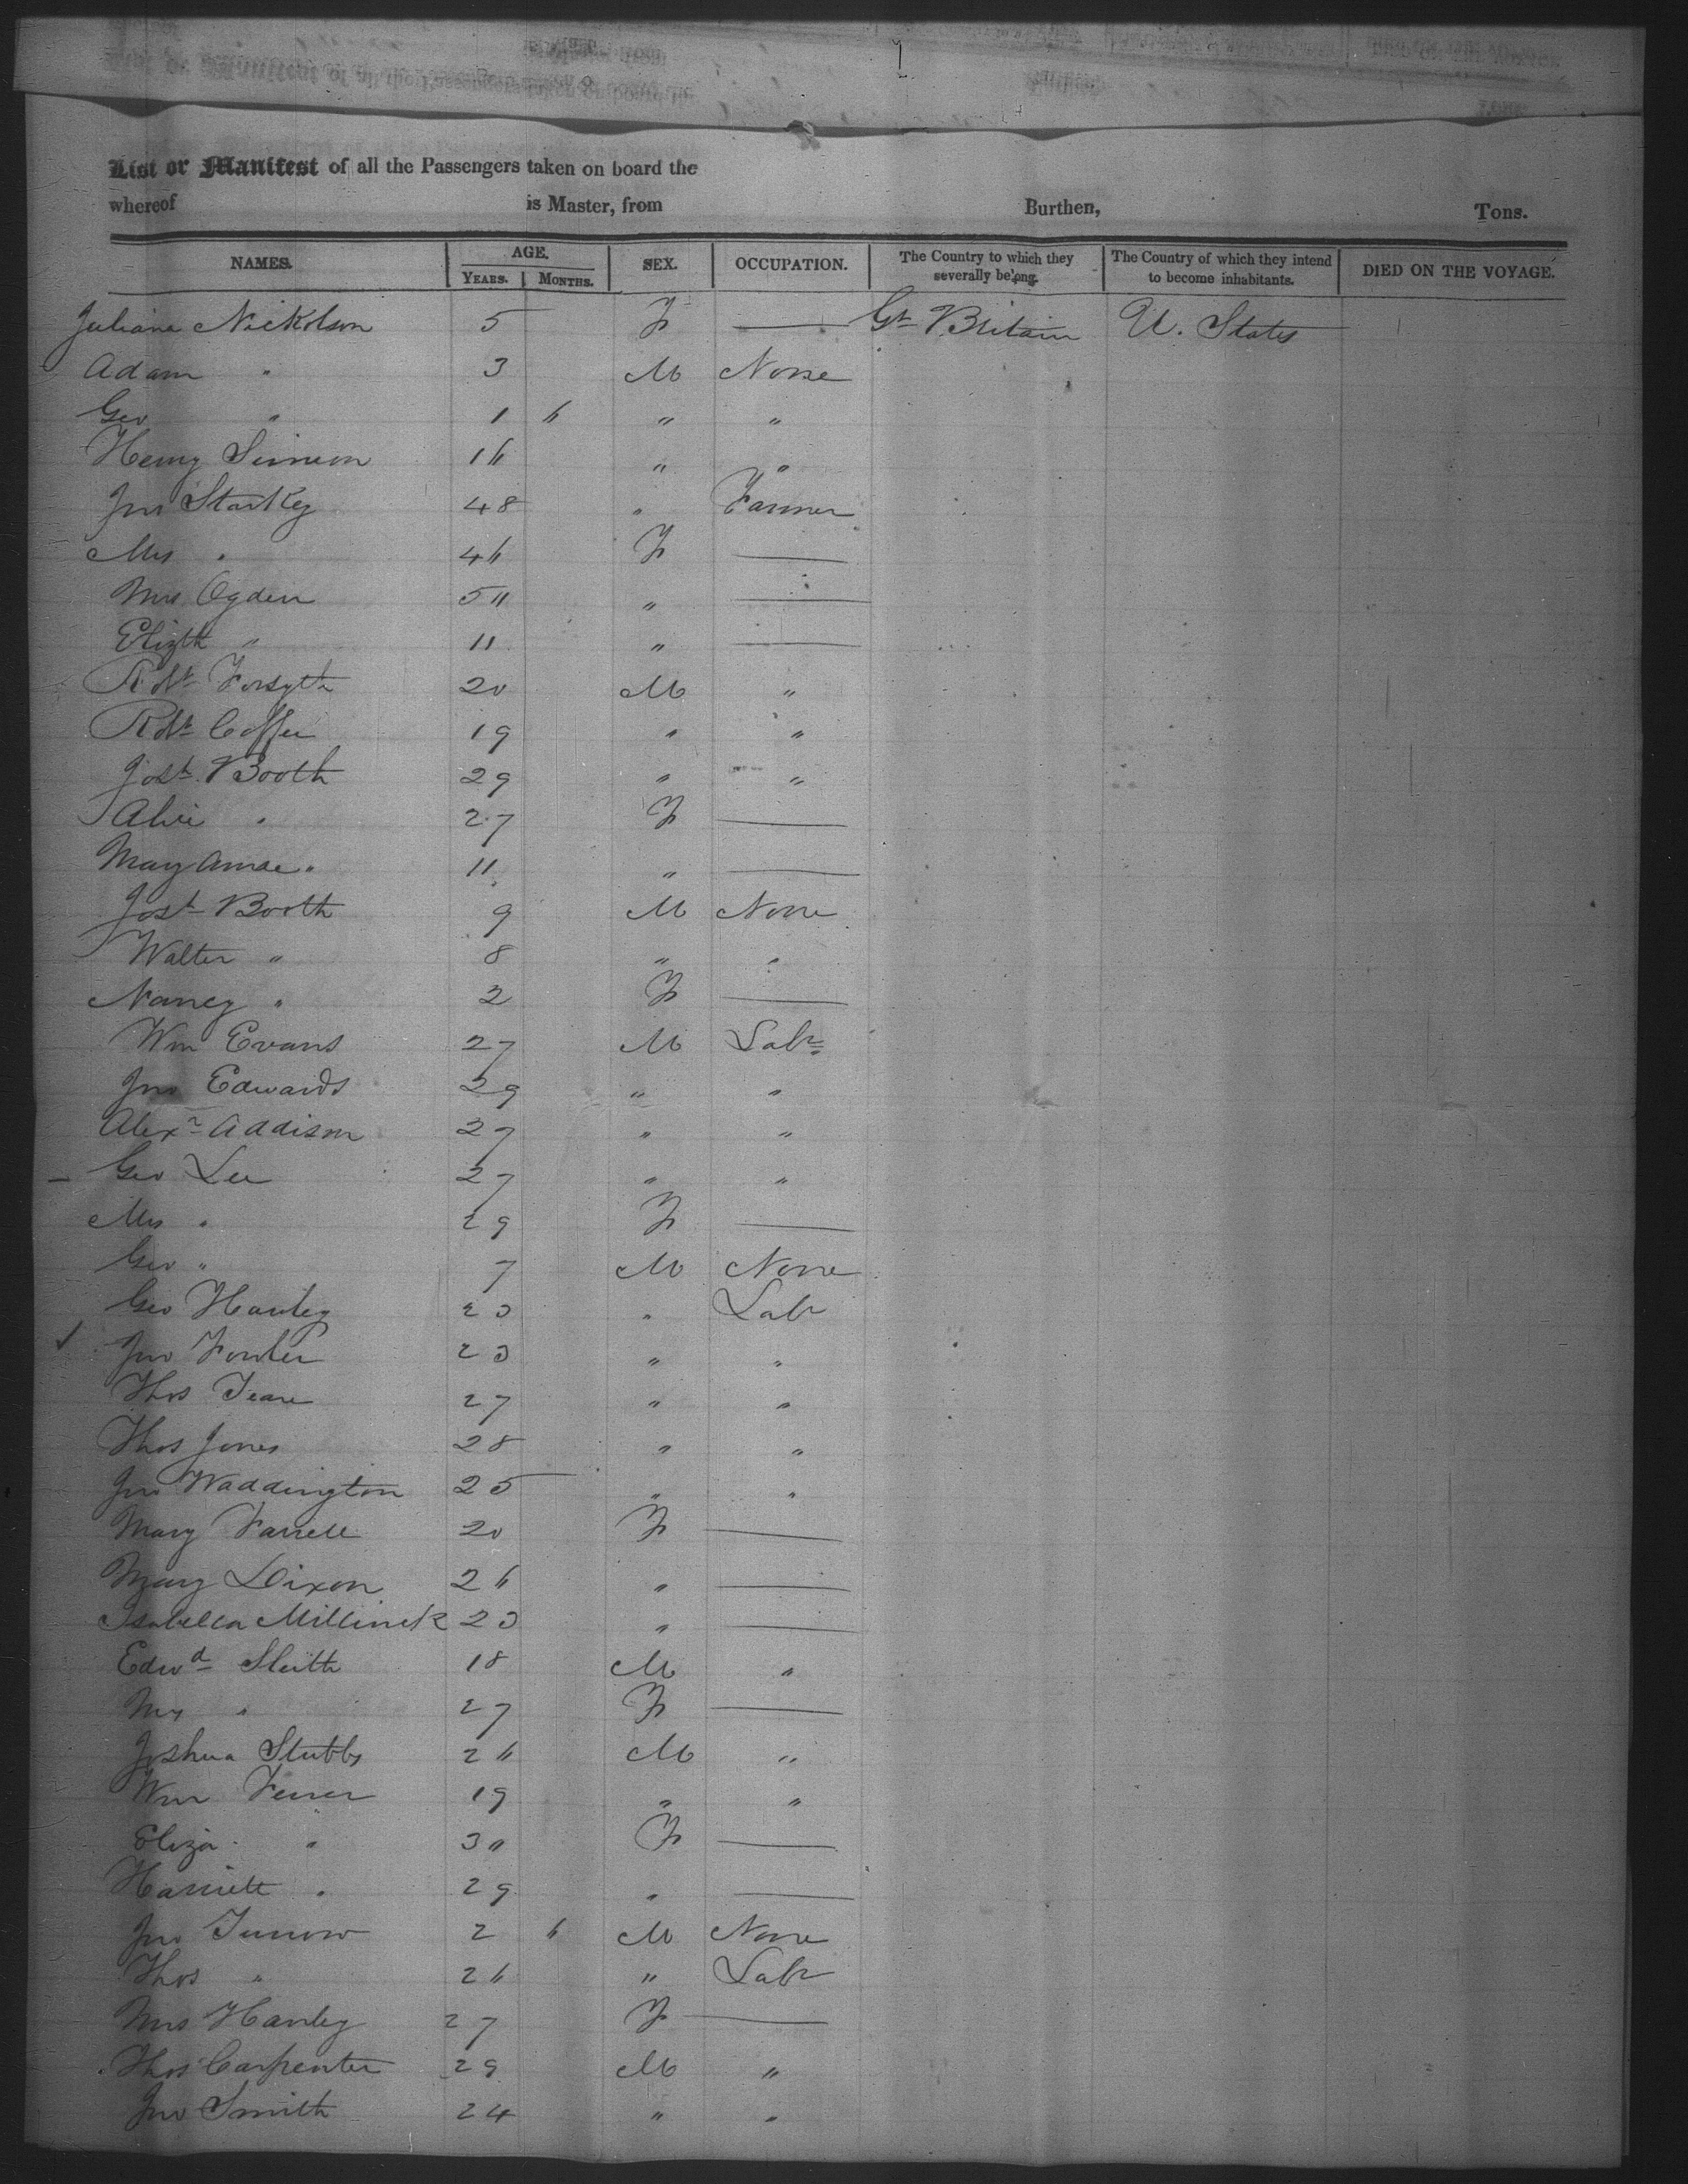 List or Manifest of all the Passengers taken on board the
whereof is Master, from Burthen, Tons.
NAMES. AGE. SEX. OCCUPATION. The Country to which they severally belong. The Country of which they intend to become inhabitants. DIED ON THE VOYAGE.
YEARS. MONTHS.
Juliana Nickolson 5 F — Gt Britain U. States
Adam " 3 M None
Geo " 1 6 " "
Henry Simeon 16 " "
Jno Starkey 48 " Farmer
Mrs " 46 F —
Mrs Ogden 50 " —
Elizth " 11 " —
Robt Forsyth 20 M "
Robt Coffee 19 " "
Josh Booth 29 " "
Alice " 27 F —
Mary Anne " 11 " —
Josh Booth 9 M None
Walter " 8 " "
Nancy " 2 F —
Wm Evans 27 M Labr
Jno Edwards 29 " "
Alexr Addison 27 " "
Geo Lee 27 " "
Mrs " 29 F —
Geo " 7 M None
Geo Hanley 23 " Labr
Jno Fowler 23 " "
Thos Teare 27 " "
Thos Jones 28 " "
Jno Waddington 25 " "
Mary Farrell 20 F —
Mary Dixon 26 " —
Isabella 23 " —
Edwd Sleith 18 M "
" 27 F —
Joshua Stubbs 26 M "
Wm 19 " "
Eliza " 30 F —
Harriett " 29 " —
Jno 2 6 M None
Thos " 26 " Labr
Mrs Hanley 27 F —
Thos Carpenter 29 M "
Jno Smith 24 " "